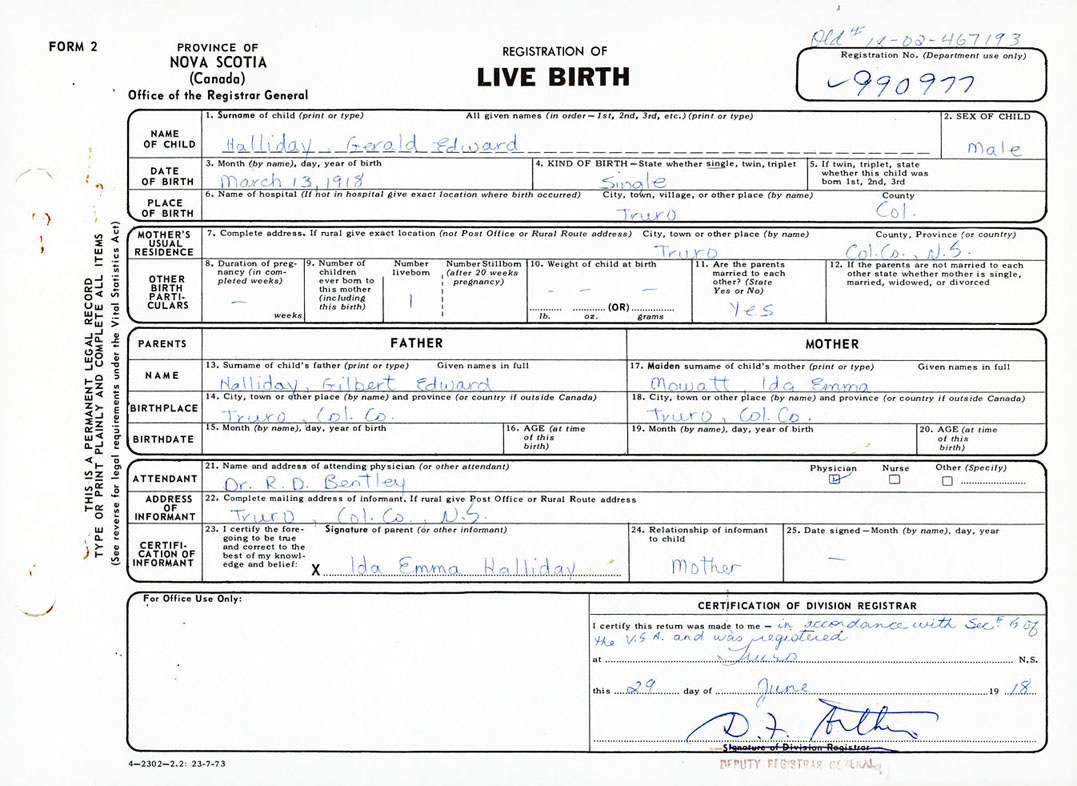 FORM 2
PROVINCE OF
NOVA SCOTIA
(Canada)
Office of the Registrar General
REGISTRATION OF
LIVE BIRTH
Old # 18-02-467193
Registration No. (Department use only)
990977
NAME OF CHILD
1. Surname of child (print or type) All given names (in order—1st, 2nd, 3rd, etc.) (print or type)
Halliday, Gerald Edward
2. SEX OF CHILD
Male
DATE OF BIRTH
3. Month (by name), day, year of birth
March 13, 1918
4. KIND OF BIRTH—State whether single, twin, triplet
Single
5. If twin, triplet, state whether this child was born 1st, 2nd, 3rd
PLACE OF BIRTH
6. Name of hospital (If not in hospital give exact location where birth occurred) City, town, village, or other place (by name) County
Truro Col.
MOTHER'S USUAL RESIDENCE
7. Complete address. If rural give exact location (not Post Office or Rural Route address) City, town or other place (by name) County, Province (or country)
Truro Col. Co., N.S.
OTHER BIRTH PARTICULARS
8. Duration of pregnancy (in completed weeks)
— weeks
9. Number of children ever born to this mother (including this birth)
Number liveborn
1
Number Stillborn (after 20 weeks pregnancy)
10. Weight of child at birth
— — —
lb. oz. (OR) grams
11. Are the parents married to each other? (State Yes or No)
Yes
12. If the parents are not married to each other state whether mother is single, married, widowed, or divorced
PARENTS FATHER MOTHER
NAME
13. Surname of child's father (print or type) Given names in full
Halliday, Gilbert Edward
17. Maiden surname of child's mother (print or type) Given names in full
Mowatt, Ida Emma
BIRTHPLACE
14. City, town or other place (by name) and province (or country if outside Canada)
Truro, Col. Co.
18. City, town or other place (by name) and province (or country if outside Canada)
Truro, Col. Co.
BIRTHDATE
15. Month (by name), day, year of birth
16. AGE (at time of this birth)
19. Month (by name), day, year of birth
20. AGE (at time of this birth)
ATTENDANT
21. Name and address of attending physician (or other attendant)
Dr. R. D. Bentley
Physician Nurse Other (Specify)
ADDRESS OF INFORMANT
22. Complete mailing address of informant. If rural give Post Office or Rural Route address
Truro, Col. Co., N.S.
CERTIFICATION OF INFORMANT
23. I certify the foregoing to be true and correct to the best of my knowledge and belief:
Signature of parent (or other informant)
X Ida Emma Halliday
24. Relationship of informant to child
Mother
25. Date signed—Month (by name), day, year
—
For Office Use Only:
CERTIFICATION OF DIVISION REGISTRAR
I certify this return was made to me — in accordance with Sec # 6 of
the V.S A. and was registered
at Truro N.S.
this 29 day of June 19 18
D. F.
Signature of Division Registrar
DEPUTY REGISTRAR GENERAL
4—2302—2.2: 23-7-73
THIS IS A PERMANENT LEGAL RECORD
TYPE OR PRINT PLAINLY AND COMPLETE ALL ITEMS
(See reverse for legal requirements under the Vital Statistics Act)